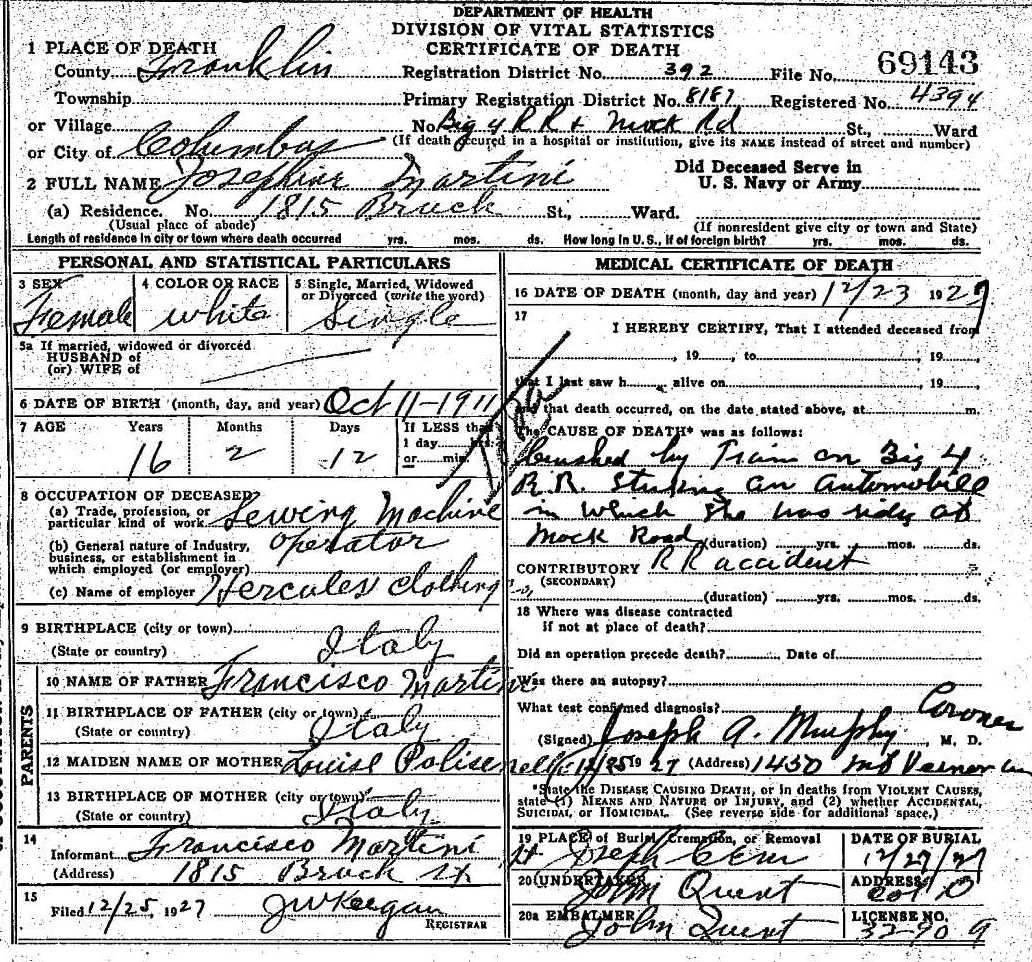 DEPARTMENT OF HEALTH
DIVISION OF VITAL STATISTICS
CERTIFICATE OF DEATH
1 PLACE OF DEATH
County Franklin Registration District No. 392 File No. 69143
Township Primary Registration District No. 8187 Registered No. 4394
or Village No. Big 4 R R & Mock Rd St., Ward
or City of Columbus (If death occured in a hospital or institution, give its NAME instead of street and number)
2 FULL NAME Josephine Martini Did Deceased Serve in U. S. Navy or Army
(a) Residence. No. 1815 Bruck St., Ward.
(Usual place of abode) (If nonresident give city or town and State)
Length of residence in city or town where death occurred yrs. mos. ds. How long in U.S., if of foreign birth? yrs. mos. ds.
PERSONAL AND STATISTICAL PARTICULARS
3 SEX 4 COLOR OR RACE 5 Single, Married, Widowed
or Divorced (write the word)
Female White Single
5a If married, widowed or divorced
HUSBAND of
(or) WIFE of
6 DATE OF BIRTH (month, day, and year) Oct 11-1911
7 AGE Years Months Days If LESS than
1 day hrs.
or min.
16 2 12
8 OCCUPATION OF DECEASED
(a) Trade, profession, or
particular kind of work Sewing Machine
(b) General nature of Industry, operator
business, or establishment in
which employed (or employer)
(c) Name of employer Hercules Clothing
9 BIRTHPLACE (city or town)
(State or country) Italy
PARENTS
10 NAME OF FATHER Francisco Martini
11 BIRTHPLACE OF FATHER (city or town)
(State or country) Italy
12 MAIDEN NAME OF MOTHER Louise Polisenelli
13 BIRTHPLACE OF MOTHER (city or town)
(State or country) Italy
14
Informant Francisco Martini
(Address) 1815 Bruck St
15
Filed 12/25, 1927 J W Keegan
REGISTRAR
MEDICAL CERTIFICATE OF DEATH
16 DATE OF DEATH (month, day and year) 12/23 1927
17
I HEREBY CERTIFY, That I attended deceased from
, 19 , to , 19
that I last saw h alive on , 19
and that death occurred, on the date stated above, at m.
The CAUSE OF DEATH* was as follows:
Crushed by Train on Big 4
R.R. Striking an automobile
in which she was riding at
Mock Road (duration) yrs. mos. ds.
CONTRIBUTORY R R accident
(SECONDARY)
(duration) yrs. mos. ds.
18 Where was disease contracted
if not at place of death?
Did an operation precede death? Date of
Was there an autopsy?
What test confirmed diagnosis? Coroner
(Signed) Joseph A. Murphy, M. D.
12/25 1927 (Address) 1430 Mt Vernon Av
*State the DISEASE CAUSING DEATH, or in deaths from VIOLENT CAUSES,
state (1) MEANS AND NATURE OF INJURY, and (2) whether ACCIDENTAL,
SUICIDAL, or HOMICIDAL. (See reverse side for additional space.)
19 PLACE of Burial, Cremation, or Removal DATE OF BURIAL
St Joseph Cem 12/27/27
20 (UNDERTAKER John Quent ADDRESS Col O
20a EMBALMER John Quent LICENSE NO. 3290 9